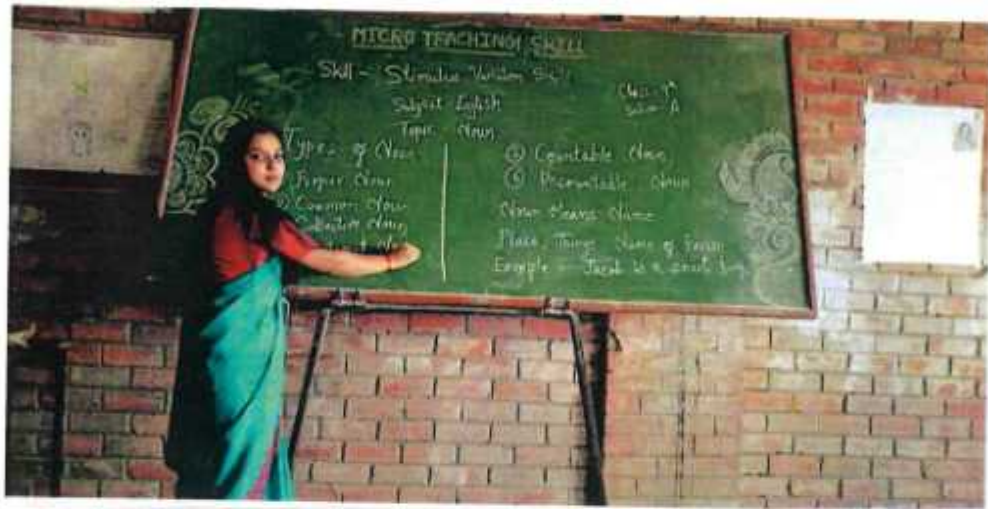 MICRO TEACHING SKILL
Skill - Stimulus Variation
Subject English
Class -
A
Topic Noun
Types of Noun
Proper Noun
Common Noun
Noun
⑤ Countable Noun
⑥ Uncountable Noun
Noun Means Name
Place, Things Name of Person
Example - Jacob is a smart boy